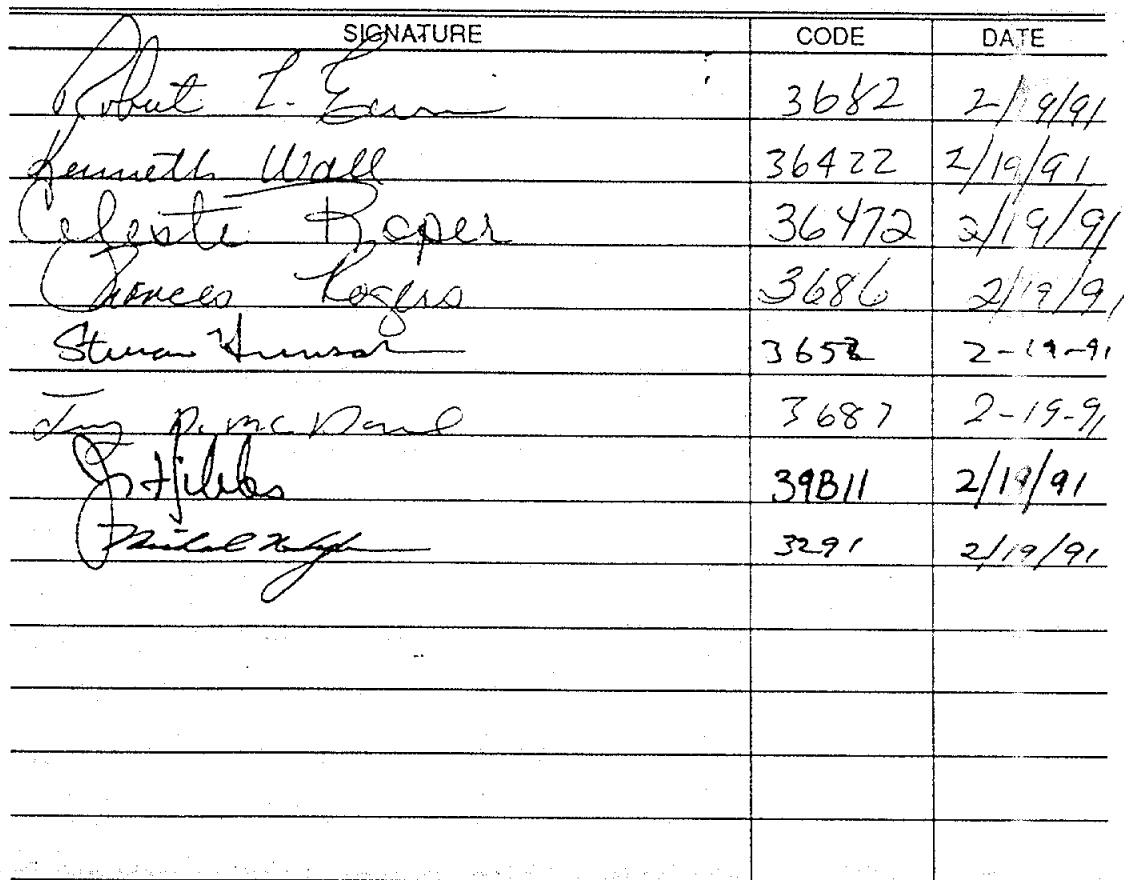 SIGNATURE CODE DATE
Robert L. 3682 2/19/91
Kenneth Wall 36422 2/19/91
Celeste Roper 36472 2/19/91
Frances Rogers 3686 2/19/91
2-19-91
D. McDaniel 3687 2-19-91
Hibbs 39B11 2/19/91
Michael 3291 2/19/91